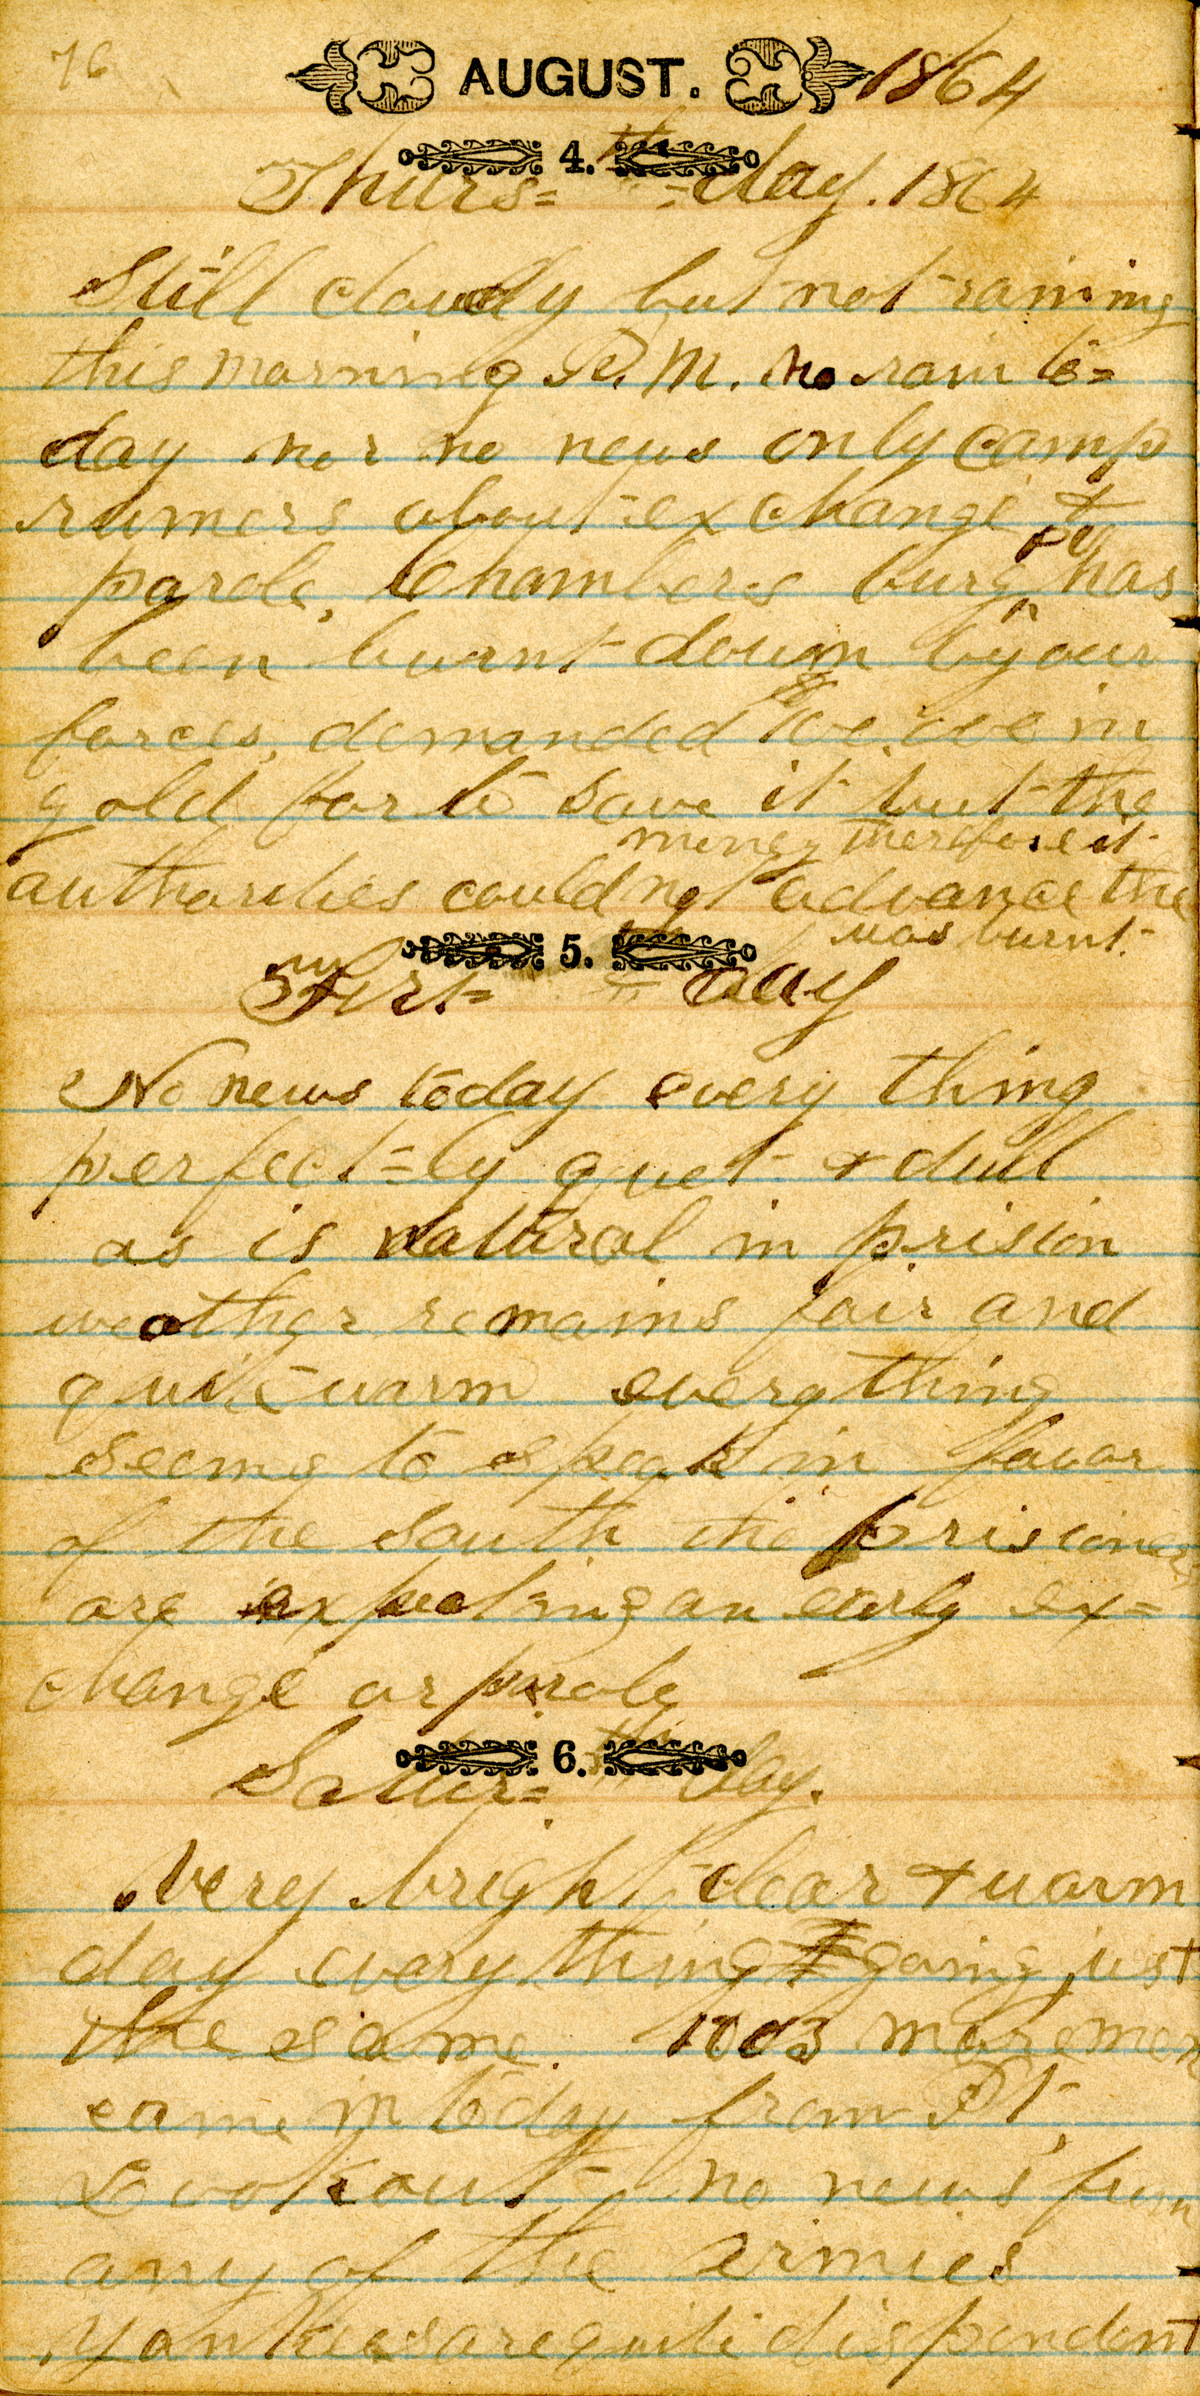 76
AUGUST. 1864
4. th
Thurs= =day. 1864
Still cloudy but not raining
this morning P. M. no rain to=
day nor no news only camp
rumers about exchange &
parole, Chambers burg Pa has
been burnt down by our
forces, demanded in
gold for to save it but the
money therefore it
authorities could not advance the
was burnt.
5. th
Fri= = day
No news today every thing
perfect=ly quet & dull
as is natural in prision
weather remains fair and
quite warm everything
seems to speak in favor
of the South the prisioners
are expecting an early ex=
change or parole
6. th
Satur= day.
Very bright clear & warm
day every thing going just
the same. 1003 more men
came in today from Pt.
Lookout no news from
any of the armies
Yankees are quite dispondent